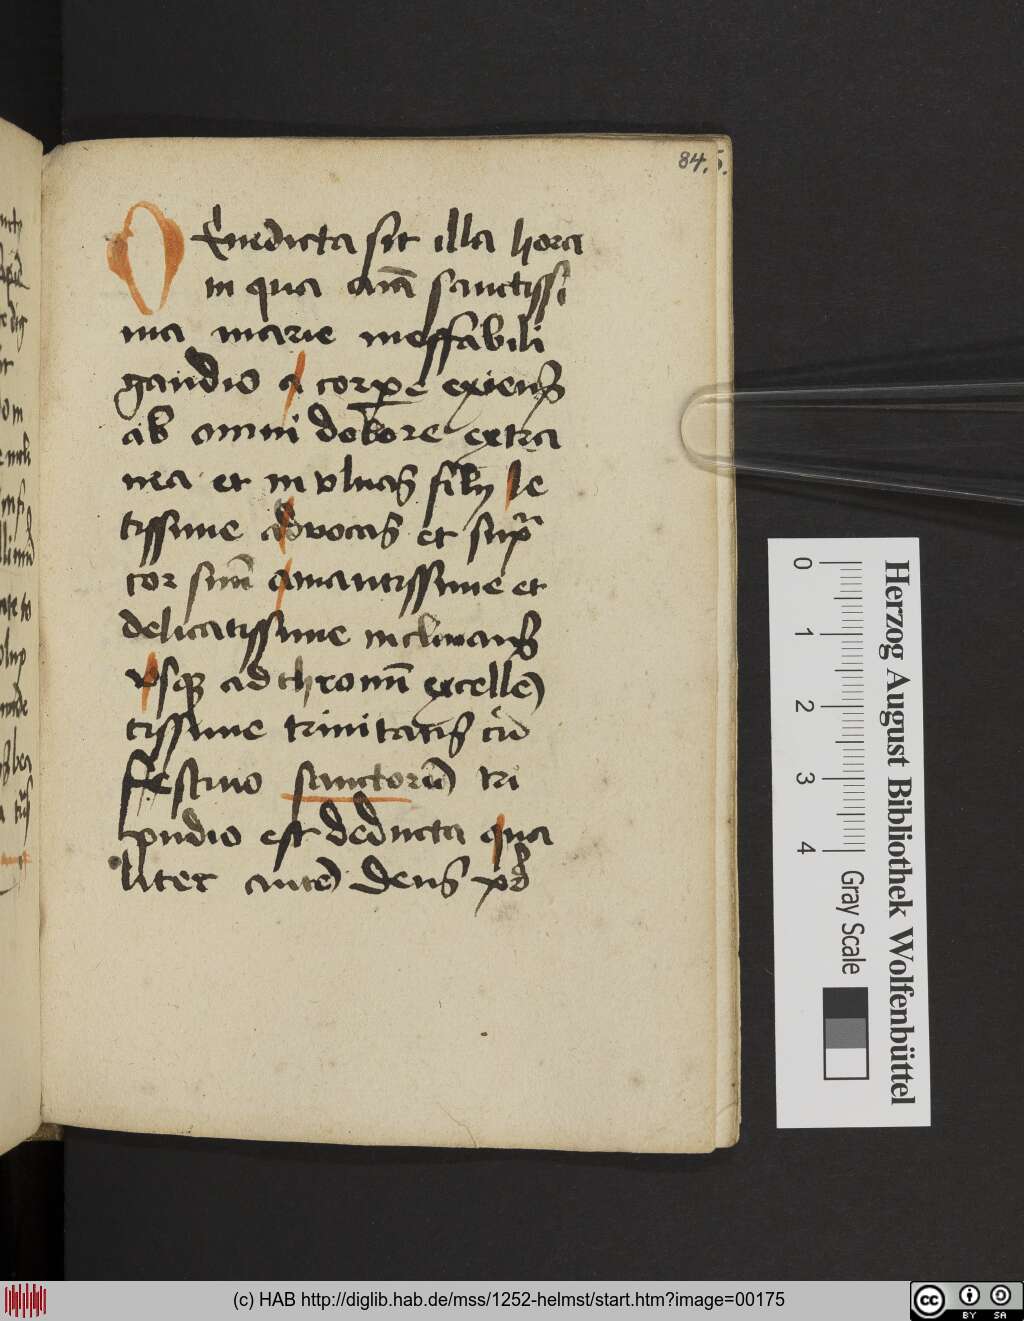 84.
5.
Enedicta sit illa hora
in qua aīa sanctissi
ma marie ineffabili
gaudio a corpore exiens
ab omni dolore extra
nea et in vlnas filij le
tissime advocas et sup
tor sim̄ amantissime et
delicatissime inclinans
vsq̄ ad thronū excellē
tissime trinitatis cū
festiuo sanctorū tri
pudio est deducta qua
liter autē dens
0 1 2 3 4
Gray Scale
Herzog August Bibliothek Wolfenbüttel
(c) HAB http://diglib.hab.de/mss/1252-helmst/start.htm?image=00175
cc BY SA